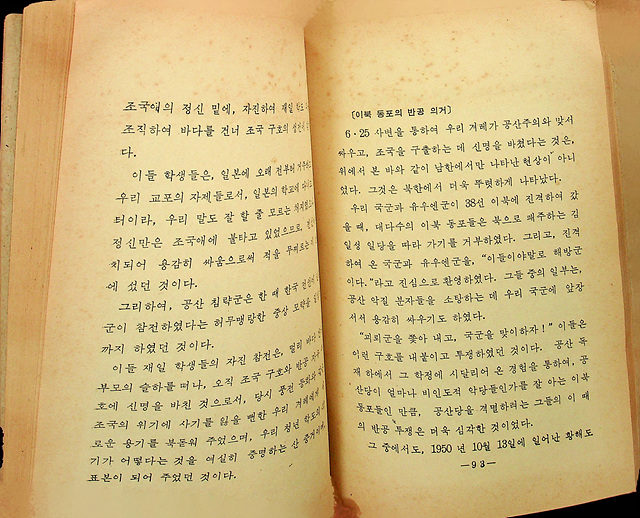 조국애의 정신 밑에, 자진하여 재일
조직하여 바다를 건너 조국 구호의
다.
이들 학생들은, 일본에 오래 전부터
우리 교포의 자제들로서, 일본의 학교에
터이라, 우리 말도 잘 할 줄 모르는
정신만은 조국애에 불타고 있었으므로,
치되어 용감히 싸움으로써 적을 무찌르는
에 섰던 것이다.
그리하여, 공산 침략군은 한 때 한국
군이 참전하였다는 허무맹랑한 중상 모략을
까지 하였던 것이다.
이들 재일 학생들의 자진 참전은, 멀리 바다
부모의 슬하를 떠나, 오직 조국 구호와 반공
호에 신명을 바친 것으로서, 당시 풍전
조국의 위기에 사기를 잃을 뻔한 우리 겨레에게
로운 용기를 북돋워 주었으며, 우리 청년 학도의
기가 어떻다는 것을 여실히 증명하는 산
표본이 되어 주었던 것이다.
[이북 동포의 반공 의거]
6·25 사변을 통하여 우리 겨레가 공산주의와 맞서
싸우고, 조국을 구출하는 데 신명을 바쳤다는 것은,
위에서 본 바와 같이 남한에서만 나타난 현상이 아니
었다. 그것은 북한에서 더욱 뚜렷하게 나타났다.
우리 국군과 유우엔군이 38선 이북에 진격하여 갔
을 때, 대다수의 이북 동포들은 북으로 패주하는 김
일성 일당을 따라 가기를 거부하였다. 그리고, 진격
하여 온 국군과 유우엔군을, “이들이야말로 해방군
이다.”라고 진심으로 환영하였다. 그들 중의 일부는,
공산 악질 분자들을 소탕하는 데 우리 국군에 앞장
서서 용감히 싸우기도 하였다.
“괴뢰군을 쫓아 내고, 국군을 맞이하자!” 이들은
이런 구호를 내붙이고 투쟁하였던 것이다. 공산 독
재 하에서 그 학정에 시달리어 온 경험을 통하여, 공
산당이 얼마나 비인도적 악당들인가를 잘 아는 이북
동포들인 만큼, 공산당을 격멸하려는 그들의 이 때
의 반공 투쟁은 더욱 심각한 것이었다.
그 중에서도, 1950년 10월 13일에 일어난 황해도
—93—